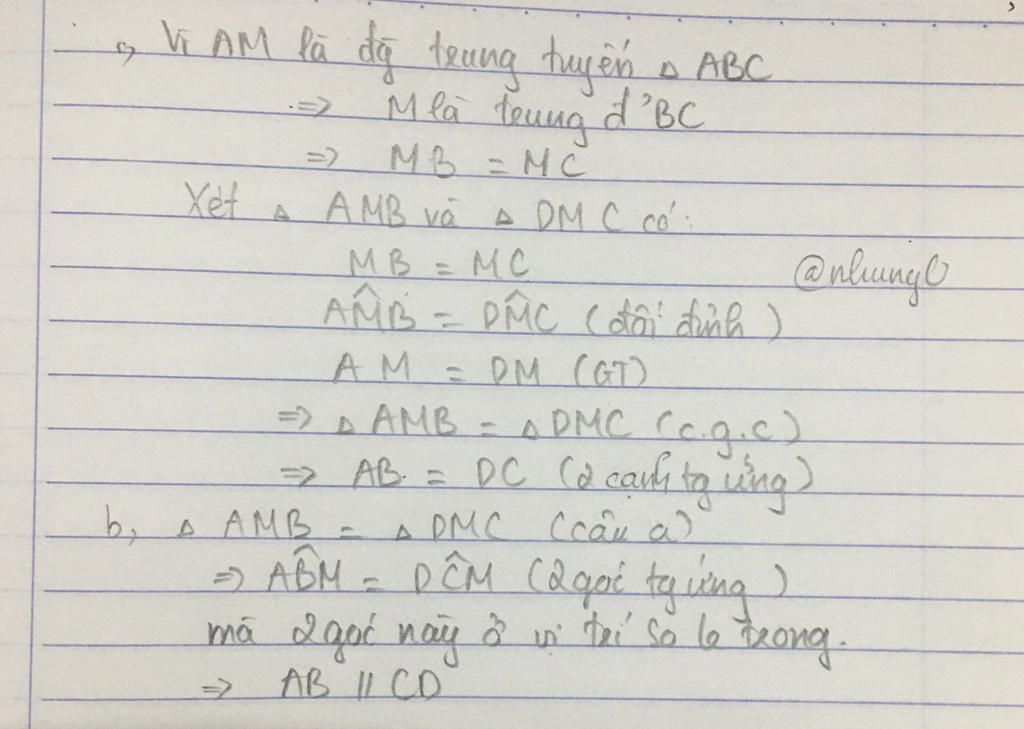 a, Vì AM là đg trung tuyến △ ABC
=> M là trung đ' BC
=> MB = MC
Xét △ AMB và △ DMC có:
MB = MC
@nhungl
AM̂B = DM̂C (đối đỉnh)
AM = DM (GT)
=> △ AMB = △ DMC (c.g.c)
=> AB = DC (2 cạnh tg ứng)
b, △ AMB = △ DMC (câu a)
=> AB̂M = DĈM (2 góc tg ứng)
mà 2 góc này ở vị trí so le trong.
=> AB // CD